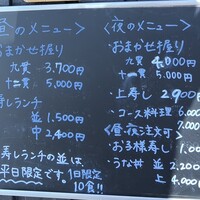 昼のメニュー>
おまかせ握り
九貫 3,700円
十二貫 5,000円
寿しランチ
並 1,500円
中 2,400円
寿しランチの並は、
平日限定です。1日限定
10食!!
<夜のメニュー>
・おまかせ握り
九貫 4,000円
十二貫 5,000円
・上寿し 2900円
・コース料理 6,000
<昼・夜注文可>
・お子様寿し 1.0
・うな丼 並 2.200
上 4.000